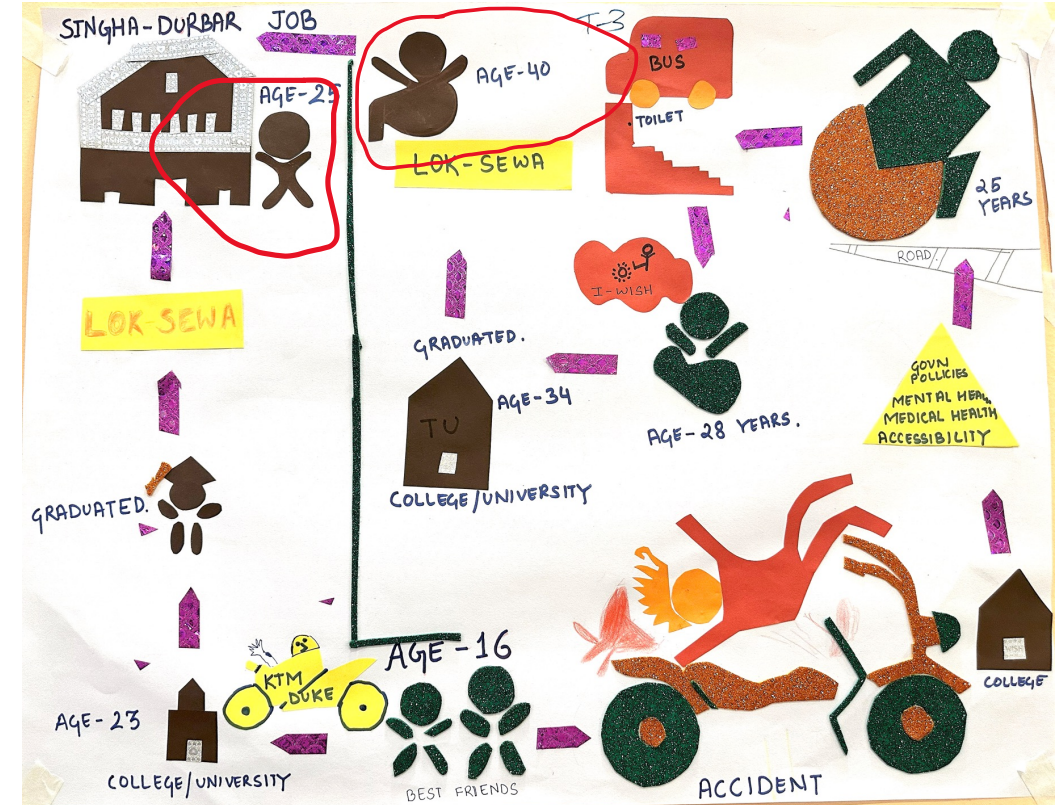 SINGHA-DURBAR JOB
AGE-25
AGE-40
T-3
BUS
TOILET
LOK-SEWA
25
YEARS
ROAD
I-WISH
LOK-SEWA
GRADUATED.
AGE-34
TU
COLLEGE/UNIVERSITY
AGE-28 YEARS.
GOVN
POLLICIES
MENTAL HEA
MEDICAL HEALTH
ACCESSIBILITY
GRADUATED.
AGE-16
KTM
DUKE
AGE-23
COLLEGE/UNIVERSITY
BEST FRIENDS
ACCIDENT
COLLEGE